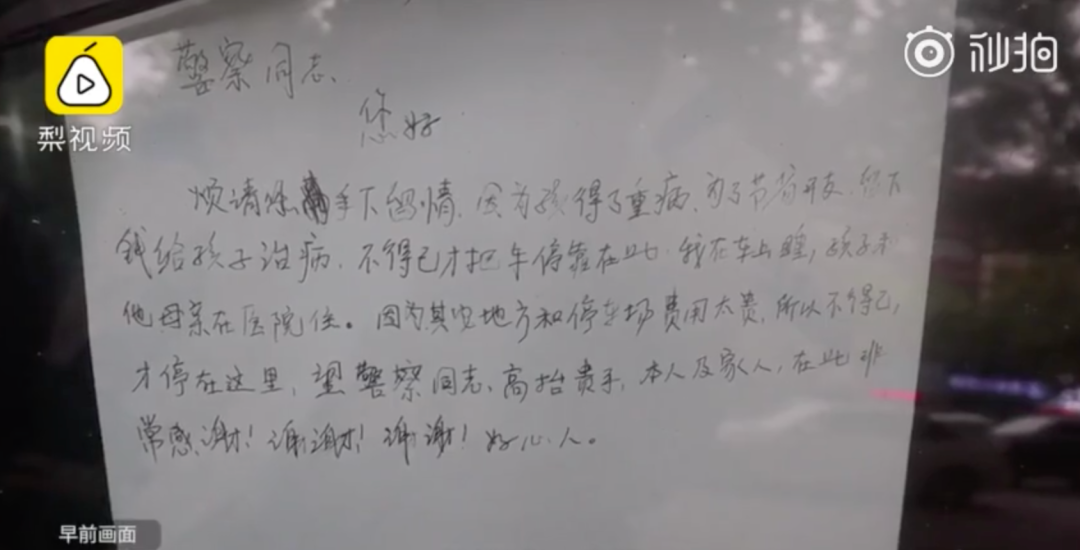 梨视频
秒拍
警察同志、
您好
烦请您手下留情，因为孩得了重病，为了节省开支，留下
钱给孩子治病，不得已才把车停靠在此，我在车上睡，孩子和
他母亲在医院住。因为其它地方和停车场费用太贵，所以不得已，
才停在这里，望警察同志、高抬贵手，本人及家人，在此非
常感谢！谢谢！谢谢！好心人。
早前画面